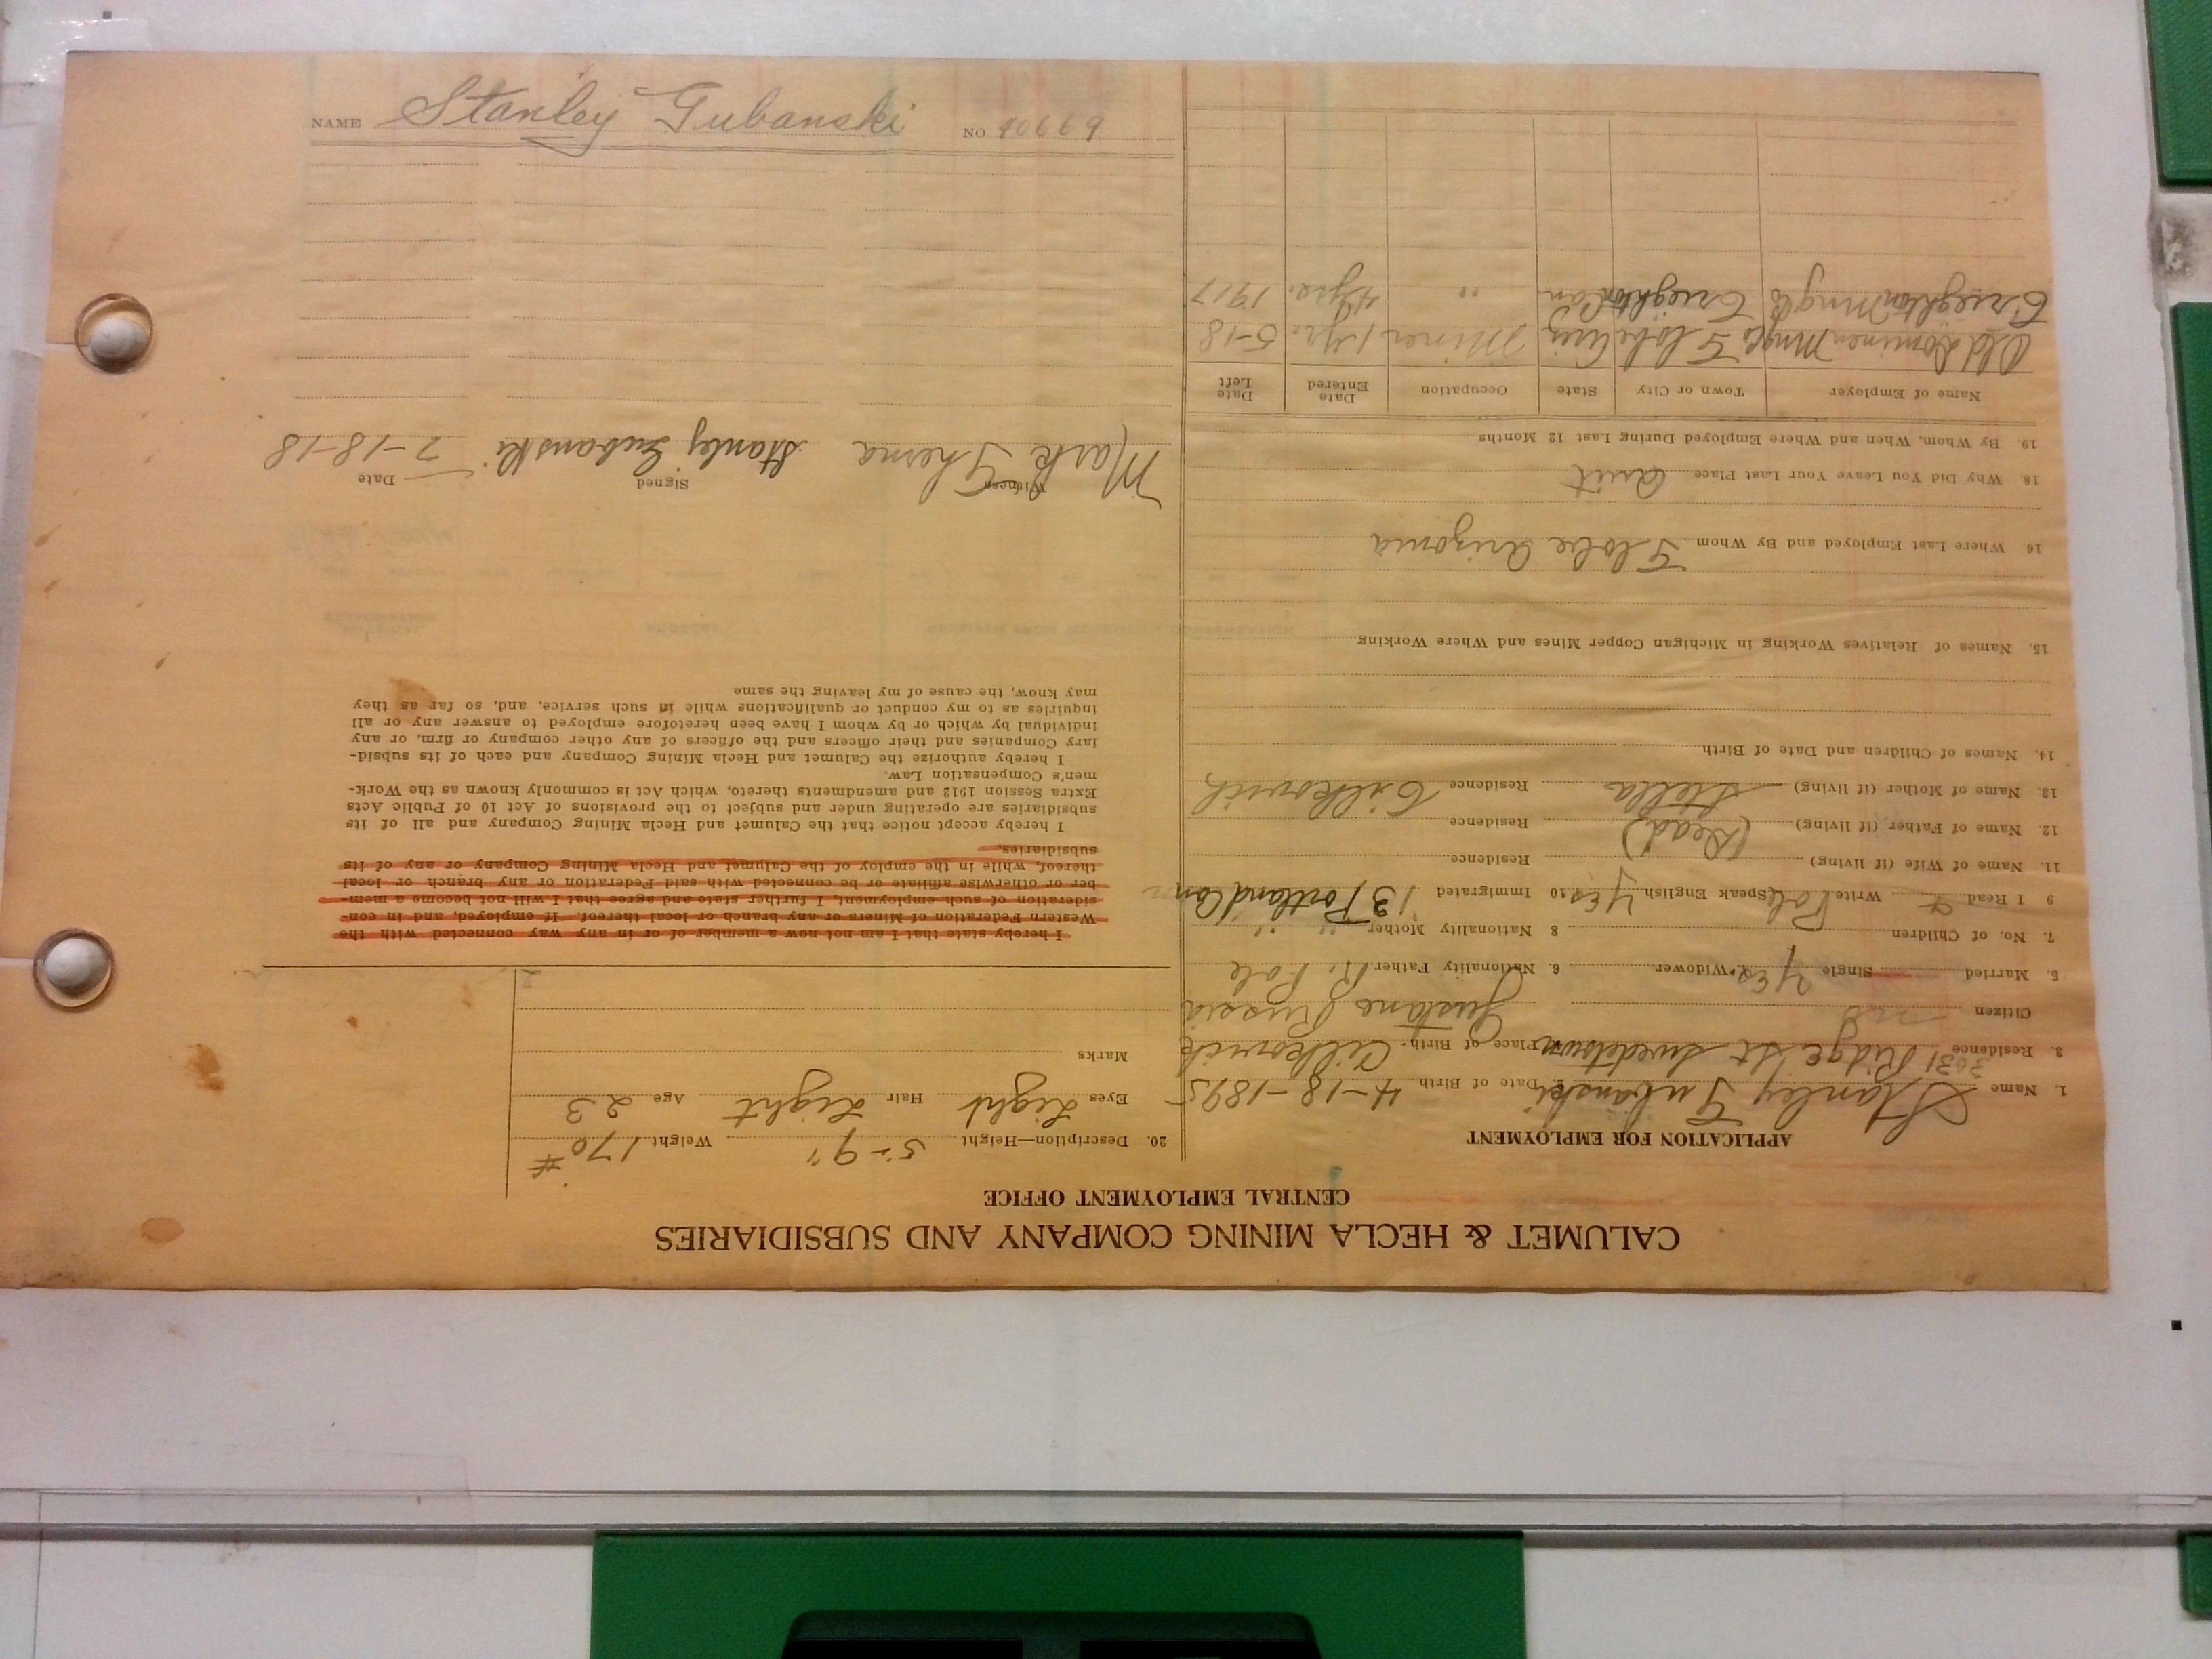 CALUMET & HECLA MINING COMPANY AND SUBSIDIARIES
CENTRAL EMPLOYMENT OFFICE
APPLICATION FOR EMPLOYMENT
1. Name Stanley Gubanski 2. Date of Birth 4-18-1895
3. Residence 3031 Ridge St Swedetown Place of Birth Cilkovich
Citizen no Russia
5. Married Single Yes Widower 6. Nationality Father R. Pole
7. No. of Children 8 Nationality Mother " "
9 I Read & Write Pole Speak English Yes 10 Immigrated 13 Portland Can
11. Name of Wife (if living) Residence
12. Name of Father (if living) (Dead) Residence
13. Name of Mother (if living) Stella Residence Cilkovich
14. Names of Children and Date of Birth
15. Names of Relatives Working in Michigan Copper Mines and Where Working
16 Where Last Employed and By Whom Globe Arizona
18. Why Did You Leave Your Last Place Quit
19. By Whom, When and Where Employed During Last 12 Months
Name of Employer Town or City State Occupation Date Entered Date Left
Old Dominen Mng Co Globe Ariz Miner 1 Yr. 5-18
Creighton Mng Co Creighton Can " 4 yrs. 1917
20. Description—Height 5-9" Weight 170 #
Eyes Light Hair Light Age 23
Marks
I hereby state that I am not now a member of or in any way connected with the
Western Federation of Miners or any branch or local thereof. If employed, and in con-
sideration of such employment, I further state and agree that I will not become a mem-
ber or otherwise affiliate or be connected with said Federation or any branch or local
thereof, while in the employ of the Calumet and Hecla Mining Company or any of its
subsidiaries.
I hereby accept notice that the Calumet and Hecla Mining Company and all of its
subsidiaries are operating under and subject to the provisions of Act 10 of Public Acts
Extra Session 1912 and amendments thereto, which Act is commonly known as the Work-
men's Compensation Law.
I hereby authorize the Calumet and Hecla Mining Company and each of its subsid-
iary Companies and their officers and the officers of any other company or firm, or any
individual by which or by whom I have been heretofore employed to answer any or all
inquiries as to my conduct or qualifications while in such service, and, so far as they
may know, the cause of my leaving the same
Witness Signed Date
Mark Gherna Stanley Gubanski 7-18-18
NAME Stanley Gubanski NO 90669